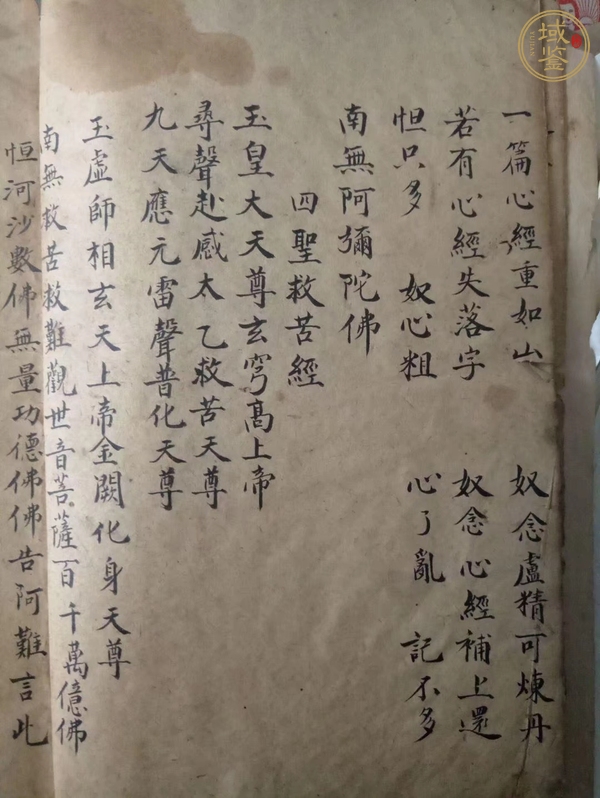 一篇心經重如山 奴念盧精可煉丹
若有心經失落字 奴念心經補上還
怛只多 奴心粗 心了亂 記不多
南無阿彌陀佛
四聖救苦經
玉皇大天尊玄穹髙上帝
尋聲赴感太乙救苦天尊
九天應元雷聲普化天尊
玉虛師相玄天上帝金闕化身天尊
南無救苦救難觀世音菩薩百千萬億佛
恒河沙數佛無量功德佛佛告阿難言此
域鉴
YUJIAN